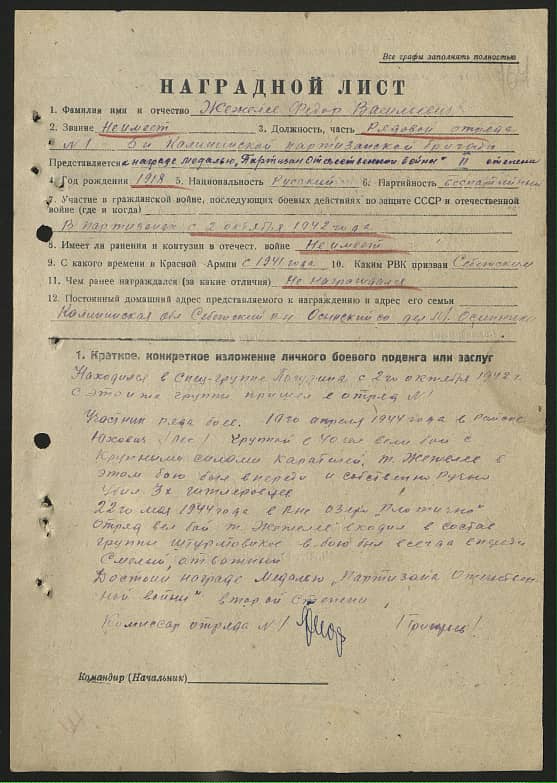 Все графы заполнять полностью
НАГРАДНОЙ ЛИСТ
1. Фамилия имя и отчество Жежелев Федор Васильевич
2. Звание Не имеет 3. Должность, часть Рядовой отряда
№1 5й Калининской партизанской бригады
Представляется к награде медалью "Партизан Отечественной войны" II степени
4. Год рождения 1918 5. Национальность Русский 6. Партийность беспартийный
7. Участие в гражданской войне, последующих боевых действиях по защите СССР и отечественной
войне (где и когда)
В партизанах с 2 октября 1942 года
8. Имеет ли ранения и контузии в отечест. войне Не имеет
9. С какого времени в Красной Армии с 1941 года 10. Каким РВК призван Себежским
11. Чем ранее награждался (за какие отличия) Не награждался
12. Постоянный домашний адрес представляемого к награждению и адрес его семьи
Калининская обл Себежский р-н Осынский с/с дер.
1. Краткое, конкретное изложение личного боевого подвига или заслуг
Находился в Спец-группе с 2го октября 1942 г.
с этой же группы пришел в отряд №1
Участник ряда боев. апреля 1944 года в районе
(лес) группой с 40 чел вели бой с
Крупными силами карателей, т. Жежелев в
этом бою был впереди и собственно ручно
убил 3х гитлеровцев
22го мая 1944 года в р-не озера
Отряд вел бой т. Жежелев входил в состав
группы штурмовиков в бою был всегда впереди
Смелый отважный
Достоин награде Медалью "Партизана Отечествен-
ной войны" второй степени
Комиссар отряда №1
Командир (Начальник)